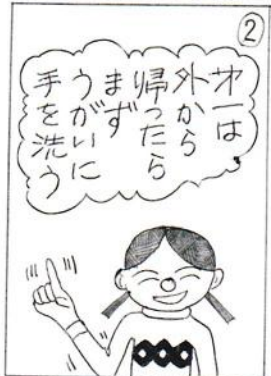 ②
才一は
外から
帰ったら
まず
うがいに
手を洗う